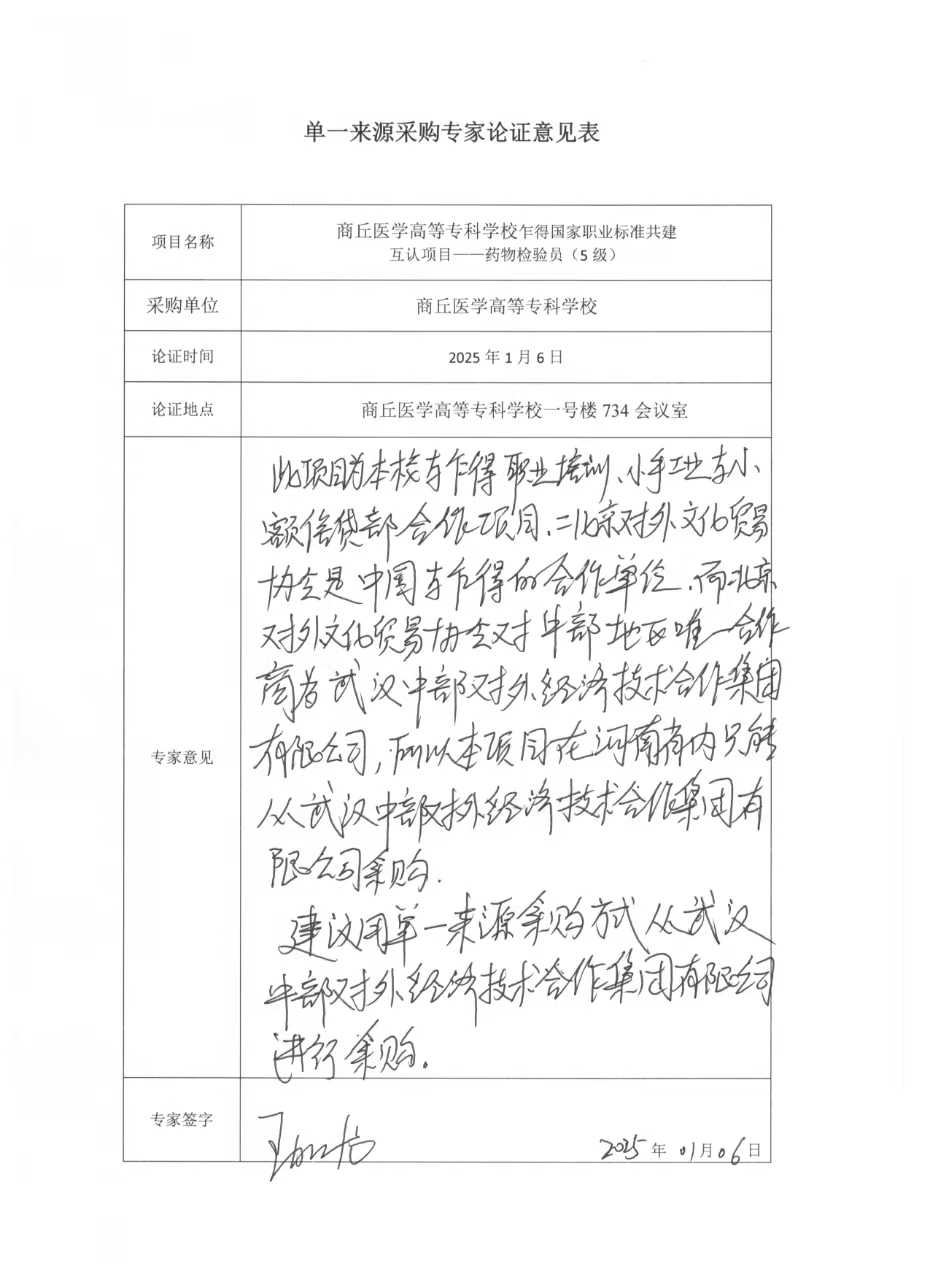 单一来源采购专家论证意见表
项目名称
商丘医学高等专科学校乍得国家职业标准共建
互认项目——药物检验员（5 级）
采购单位
商丘医学高等专科学校
论证时间
2025 年 1 月 6 日
论证地点
商丘医学高等专科学校一号楼 734 会议室
专家意见
此项目为本校与乍得职业培训、小手工业与小
额信贷部合作项目、二北京对外文化贸易
协会是中国与乍得的合作单位、而北京
对外文化贸易协会对中部地区唯一合作
商为武汉中部对外经济技术合作集团
有限公司，所以本项目在河南省内只能
从武汉中部对外经济技术合作集团有
限公司采购.
建议用单一来源采购方式从武汉
中部对外经济技术合作集团有限公司
进行采购。
专家签字
2025 年 01 月 06 日